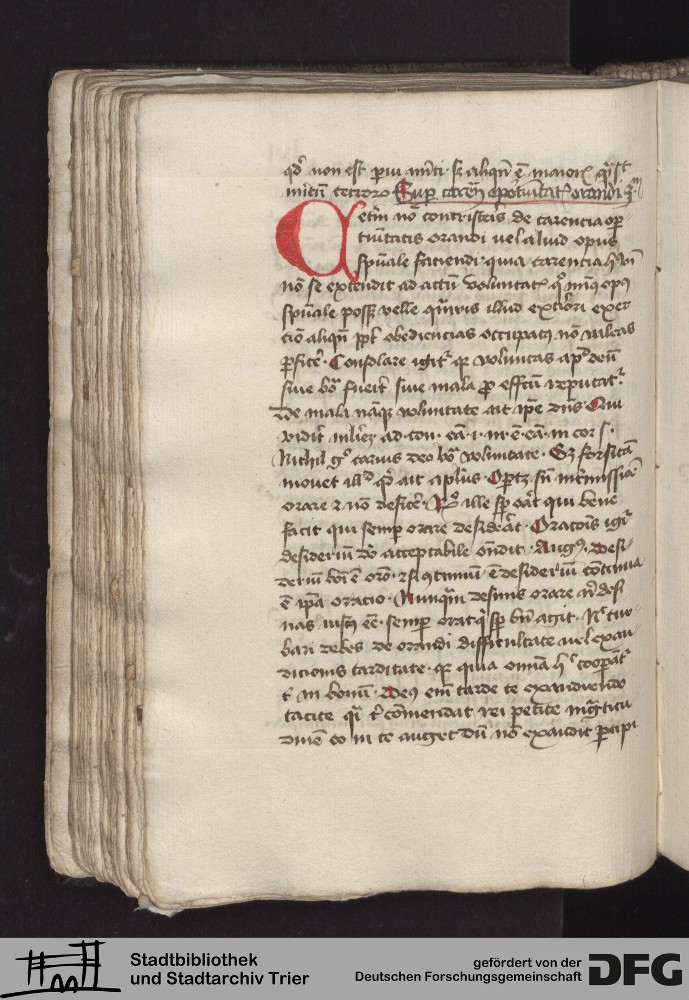 qd non est parui mĩti · sz aliqñ ẽ maioris
mitũ Sup carẽcia oportunitatis orandi
Ceterũ nõ contristeris de carencia opor
tunitatis orandi uel aliud opus
spũale faciendi · quia carencia
nõ se extendit ad actũ voluntatis opus
spũale posse velle quis illud exteriori exer
cio aliqñ ppt obediencias occupatus nõ valeas
pficẽ · Consolare igitr qz voluntas apd deũ
siue bõa fuerit siue mala pro effectu reputatr
De mala nãqz voluntate ait ipe dñs · Qui
viderit mulierẽ ad con · eã · i · m · ẽ · eã · in cor s ·
Nichil g carius deo bõa voluntate · Sz forsitã
mouet illd qd ait aplus · Oportz sñ intmissiõe
orare ⁊ nõ deficẽ · ille sp orat qui bene
facit qui semp orare desiderat · Oracois igr
desideriũ acceptabile ondit · Augus · Desi
deriũ boĩ ẽ oro · ⁊ si cõtinuũ ẽ desideriũ continua
ẽ ipa oracio · Nunqm desinis orare ñ desi
nas iustus eẽ · semper orat qui sp bñ agit · Nec tur
bari debes de orandi difficultate uel exau
dicionis tarditate · qz quia omia coopant
in bonũ · Deus eni tarde te exaudiendo
tacite comendat rei petite magnitu
dinẽ eo in te auget dũ nõ exaudit
Stadtbibliothek
und Stadtarchiv Trier
gefördert von der
Deutschen Forschungsgemeinschaft
DFG